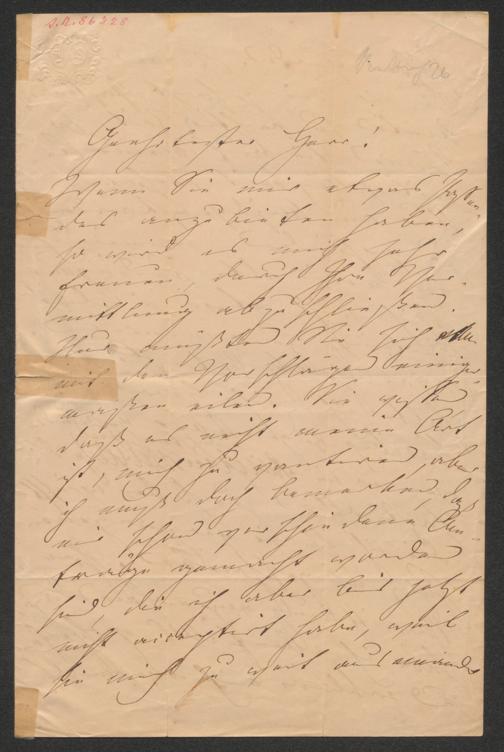 J.N. 86228
Geehrtester Herr!
Wenn Sie mir etwas Passen-
des anzubieten haben,
so wird es mich sehr
freuen, durch Ihre Ver-
mittlung abzuschließen.
Nur müßten Sie sich
mit den Vorschlägen einiger-
maßen eilen. Sie wissen
daß es nicht meine Art
ist, mich zu, aber
ich muß doch bemerken, daß
mir schon verschiedene An-
träge gemacht worden
sind, die ich aber bis jetzt
nicht acceptirt habe, weil
sie mich zu weit auseinander